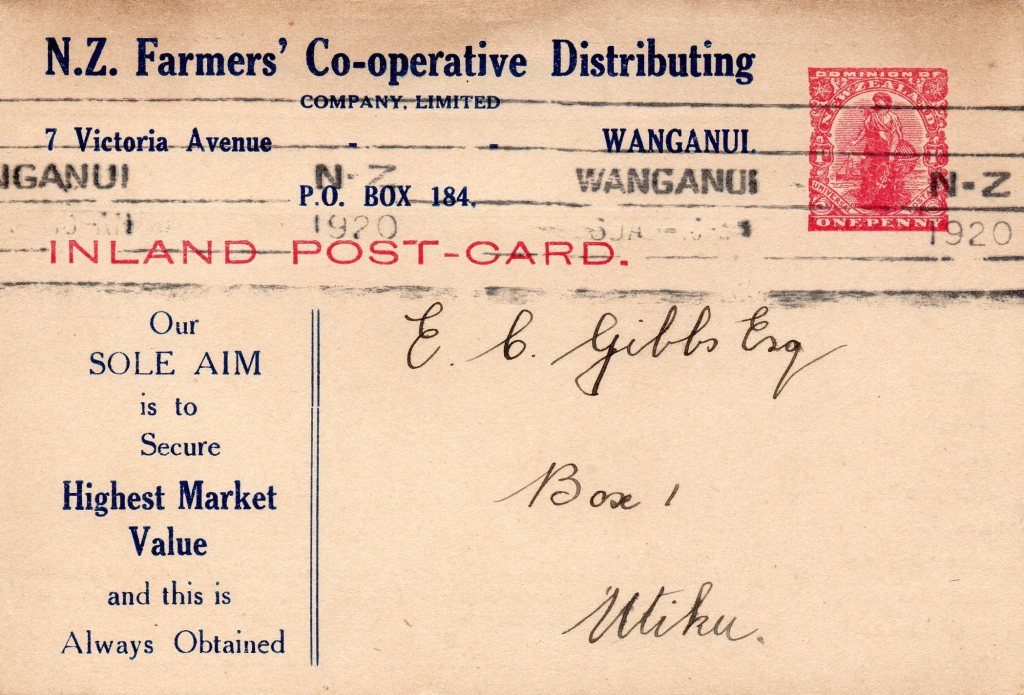 N.Z. Farmers' Co-operative Distributing
COMPANY, LIMITED
7 Victoria Avenue - - WANGANUI.
NGANUI N-Z WANGANUI N-Z
P.O. BOX 184.
1920 1920
INLAND POST-CARD.
DOMINION OF
NEW ZEALAND
UNIVERSAL
ONE PENNY
Our
SOLE AIM
is to
Secure
Highest Market
Value
and this is
Always Obtained
E. C. Gibbs Esq
Box 1
Utiku.